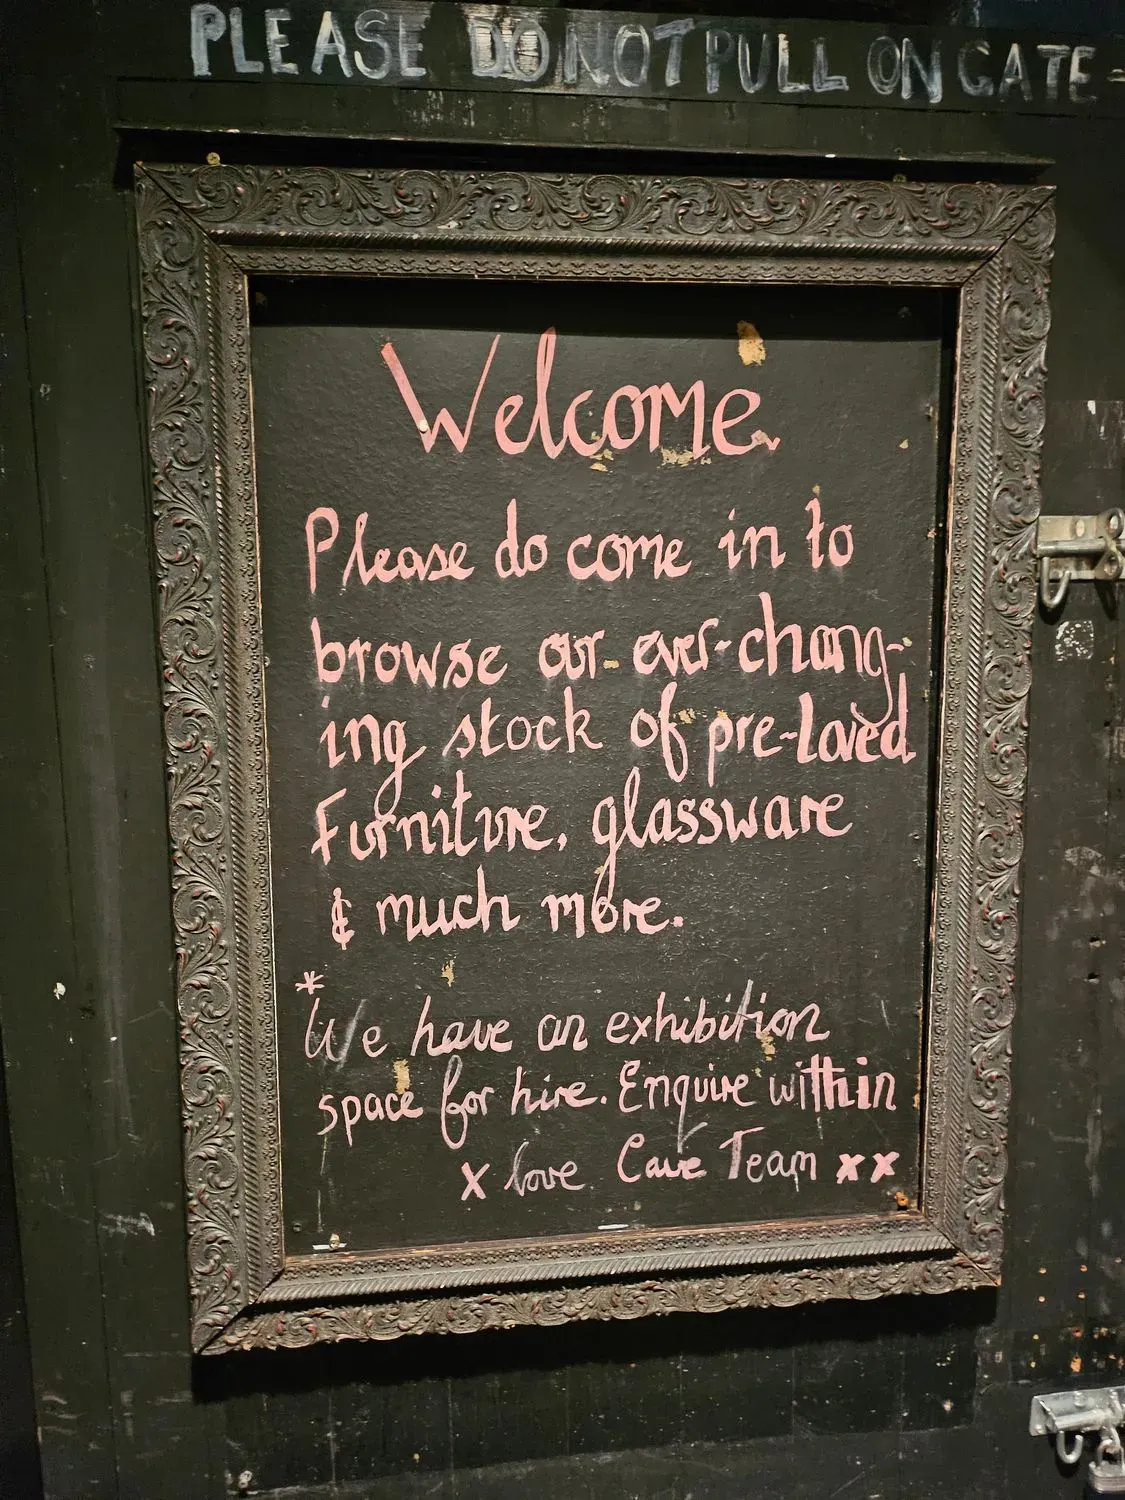 PLEASE DO NOT PULL ON GATE -
Welcome.
Please do come in to
browse our ever-chang-
ing stock of pre-loved
Furniture, glassware
& much more.
*
We have an exhibition
space for hire. Enquire within
x love Cave Team xx